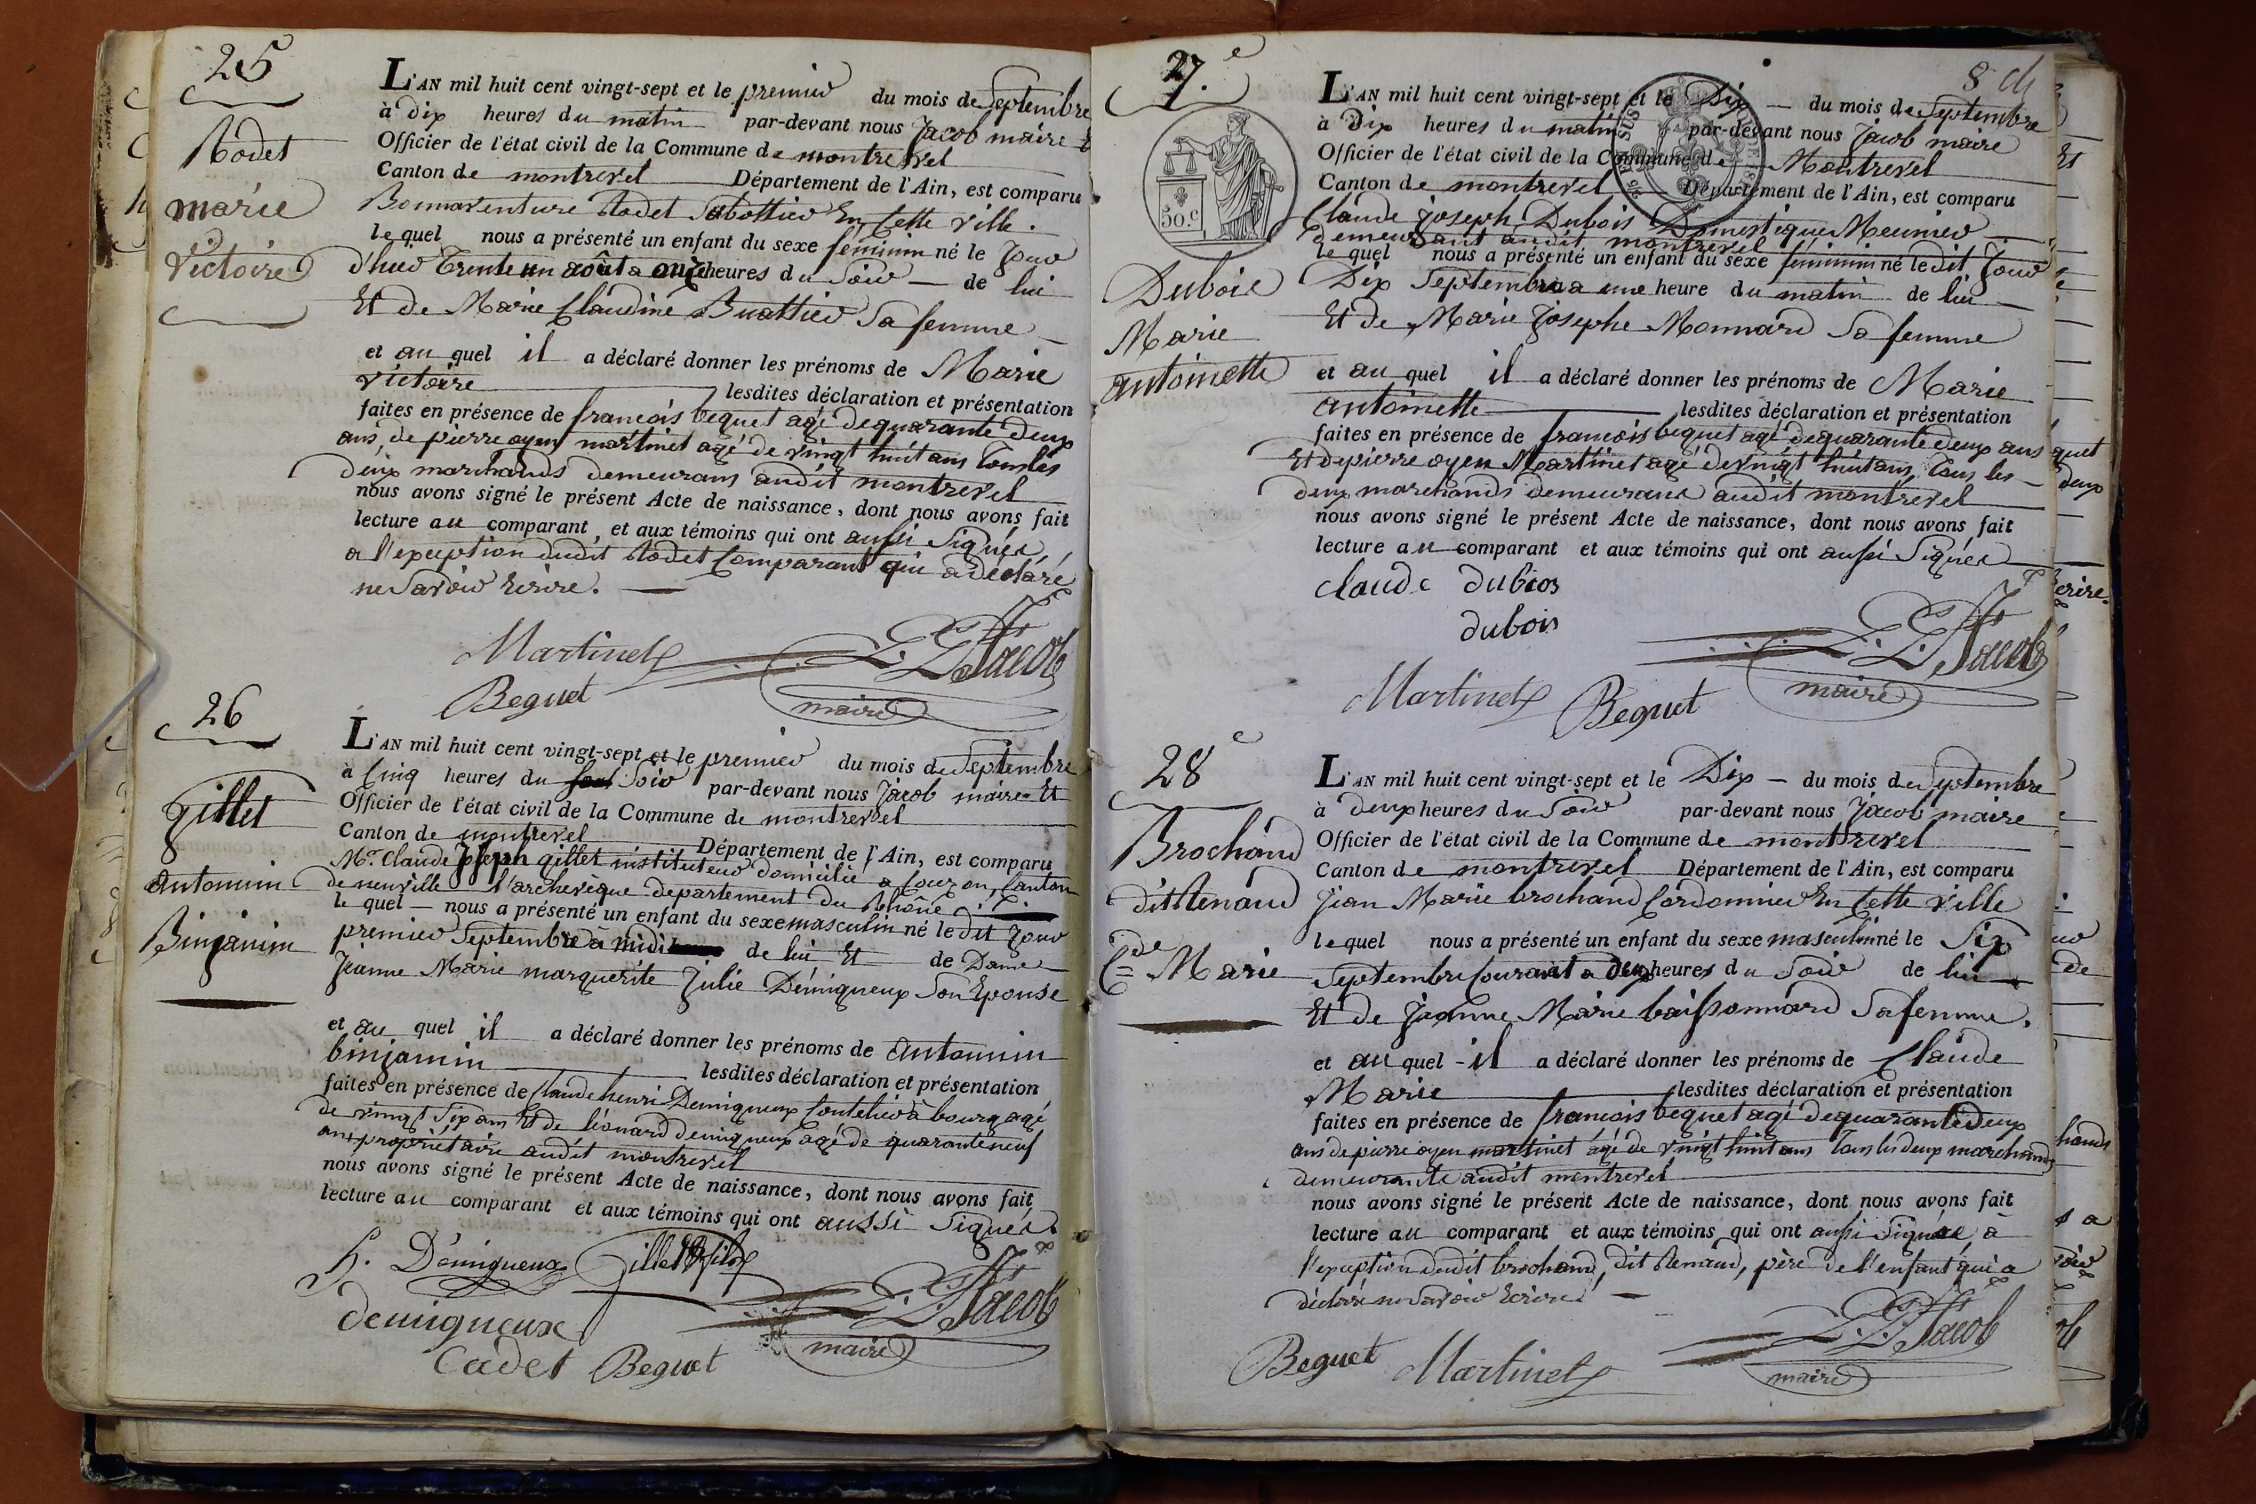 25
Rodet
marie
Victoire
L'AN mil huit cent vingt-sept et le premier du mois de Septembre
à dix heures du matin par-devant nous Jacob maire Et
Officier de l'état civil de la Commune de montrevel
Canton de montrevel Département de l'Ain, est comparu
Bonnaventure Rodet Sabottier En Cette ville.
lequel nous a présenté un enfant du sexe féminin né le Jour
d'hier Trente un août à onze heures du Soir de lui
Et de Marie Claudine Buattier Sa femme
et au quel il a déclaré donner les prénoms de Marie
victoire lesdites déclaration et présentation
faites en présence de francois bequet agé de quarante deux
ans, de pierre oyen martinet agé de vingt huit ans Tous les
deux marchands demeurans audit montrevel
nous avons signé le présent Acte de naissance, dont nous avons fait
lecture au comparant et aux témoins qui ont aussi Signés,
a l'exception dudit Rodet Comparant qui a déclaré
ne Savoir Ecrire.
Martinet
Beguet
Jacob
maire
26
Gillet
Antonnin
Binjamin
L'AN mil huit cent vingt-sept et le premier du mois de Septembre
à Cinq heures du Soir par-devant nous Jacob maire Et
Officier de l'état civil de la Commune de montrevel
Canton de montrevel Département de l'Ain, est comparu
Mr. Claude Joseph gillet instituteur domicilié a Couzon, Canton
de neuville l'archevèque departement du Rhône
lequel nous a présenté un enfant du sexe masculin né le dit Jour
premier Septembre à midi de lui Et de Dame
Jeanne Marie marguerite Julie Démiqueux Son Epouse
et au quel il a déclaré donner les prénoms de antonnin
binjamin lesdites déclaration et présentation
faites en présence de Claude henri Demiqueux Coutelier à bourg agé
de vingt Six ans Et de léonard demiqueux agé de quarante neuf
ans propriétaire audit montrevel
nous avons signé le présent Acte de naissance, dont nous avons fait
lecture au comparant et aux témoins qui ont aussi Signés.
h. Démiqueux Gillet fils
demiqueux
Cadet Beguet
Jacob
maire
27.e
8
50.c
Dubois
Marie
antoinette
L'AN mil huit cent vingt-sept et le Dix du mois de Septembre
à Dix heures du matin par-devant nous Jacob maire
Officier de l'état civil de la Commune de Montrevel
Canton de montrevel Département de l'Ain, est comparu
Claude Joseph Dubois Domestique Meunier
demeurant audit montrevel
lequel nous a présenté un enfant du sexe féminin né le dit Jour
Dix Septembre a une heure du matin de lui
Et de Marie Josephe Monnard Sa femme
et au quel il a déclaré donner les prénoms de Marie
antoinette lesdites déclaration et présentation
faites en présence de francois bequet agé de quarante deux ans
Et de pierre oyen Martinet agé de vingt huit ans Tous les
deux marchands demeurans audit montrevel
nous avons signé le présent Acte de naissance, dont nous avons fait
lecture au comparant et aux témoins qui ont aussi Signés
claude dubios
dubois
Martinet
Beguet
Jacob
maire
28e
Brochand
dit Renaud
Cde Marie
L'AN mil huit cent vingt-sept et le Dix du mois de Septembre
à deux heures du Soir par-devant nous Jacob maire
Officier de l'état civil de la Commune de montrevel
Canton de montrevel Département de l'Ain, est comparu
Jean Marie brochand Cordonnier En Cette ville
lequel nous a présenté un enfant du sexe masculin né le Six
Septembre Courant a deux heures du Soir de lui
Et de Jeanne Marie baissonnard Sa femme.
et au quel il a déclaré donner les prénoms de Claude
Marie lesdites déclaration et présentation
faites en présence de francois bequet agé de quarante deux
ans de pierre oyen martinet agé de vingt huit ans Tous les deux marchands
demeurants audit montrevel
nous avons signé le présent Acte de naissance, dont nous avons fait
lecture au comparant et aux témoins qui ont aussi Signés, à
l'exception dudit brochand, dit Renaud, père de l'enfant qui a
déclaré ne Savoir Ecrire
Beguet Martinet
Jacob
maire